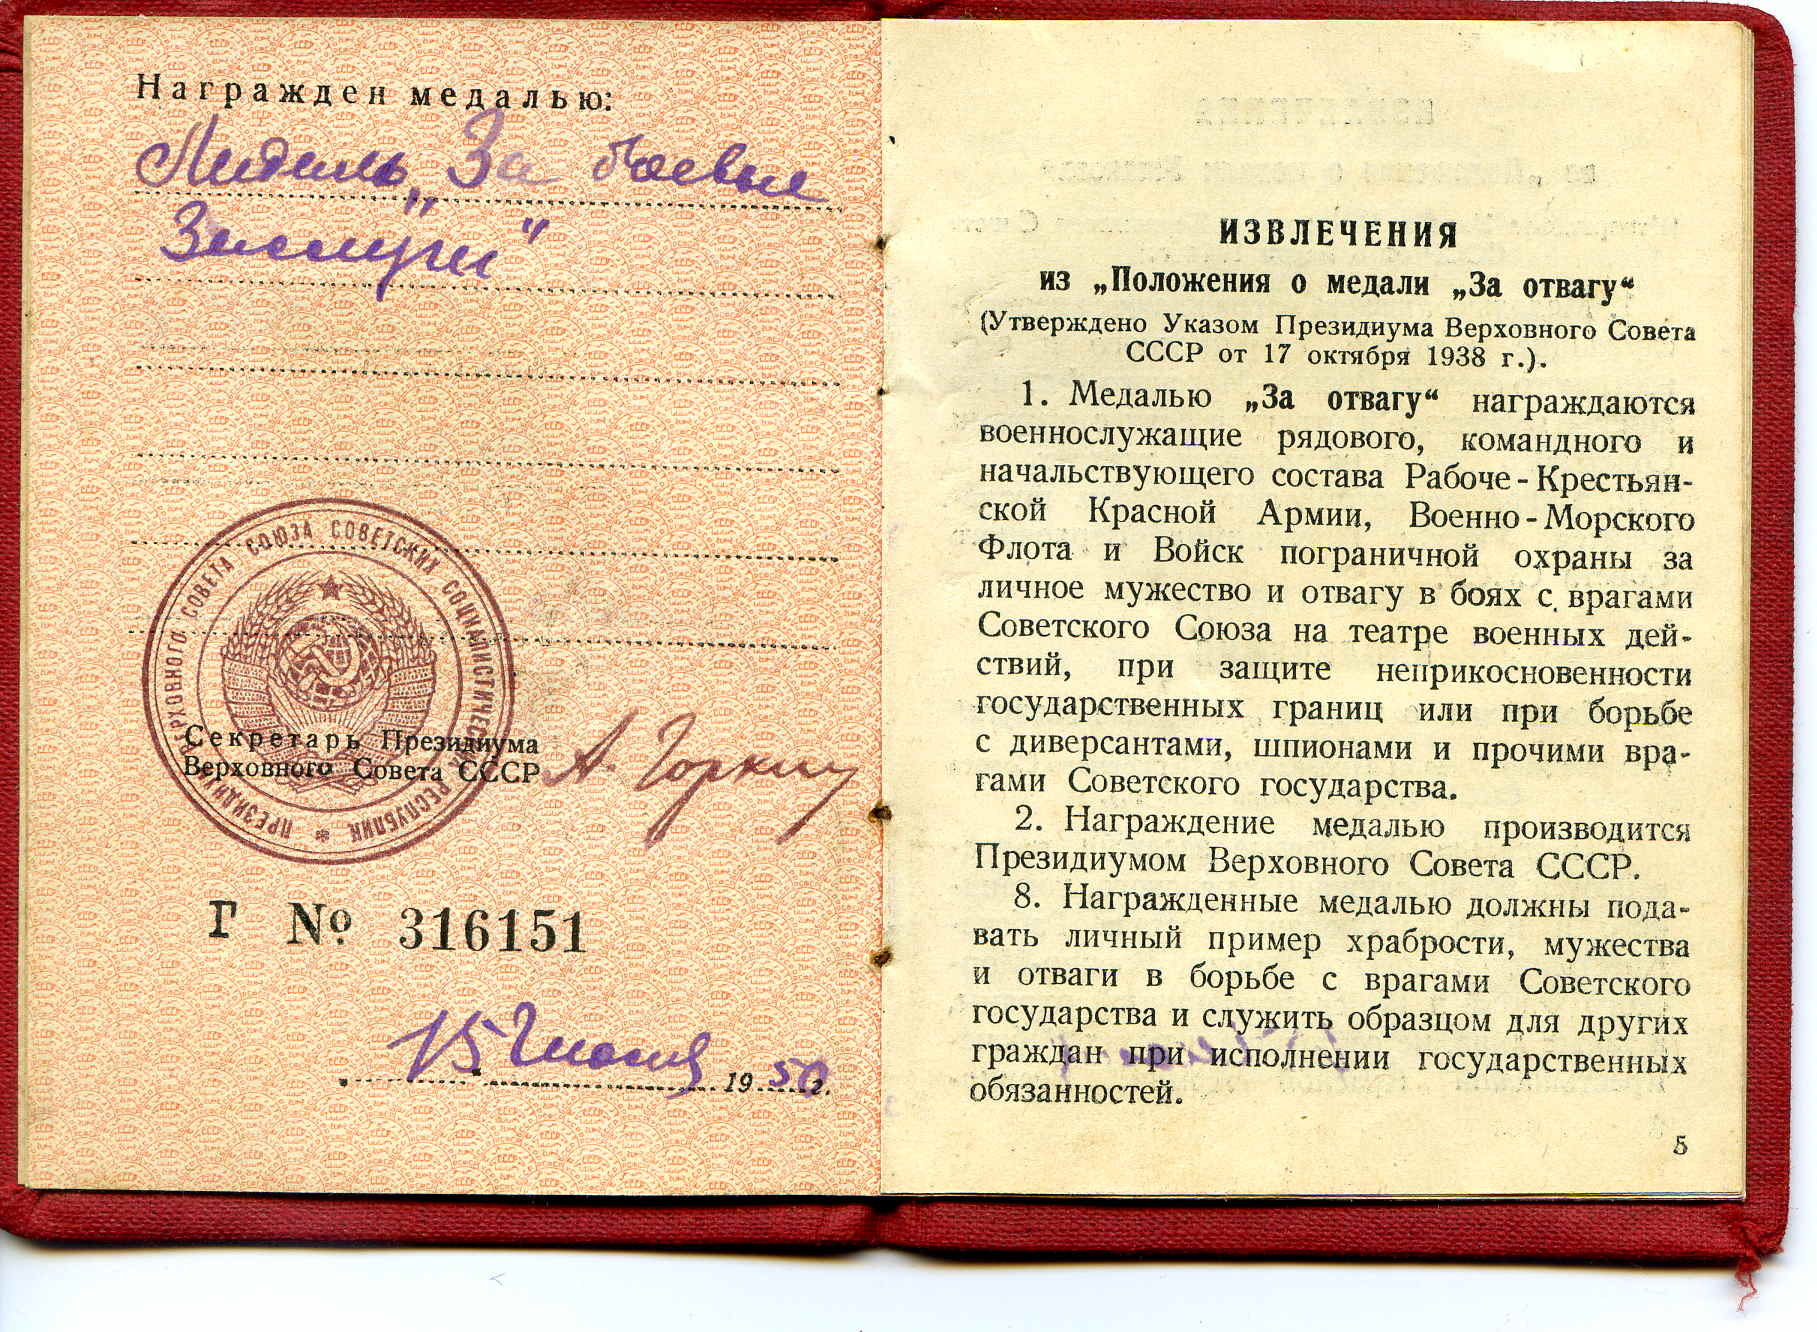 Награжден медалью:
Медаль „За боевые
Заслуги"
ПРЕЗИДИУМ ВЕРХОВНОГО СОВЕТА СОЮЗА СОВЕТСКИХ СОЦИАЛИСТИЧЕСКИХ РЕСПУБЛИК
Секретарь Президиума
Верховного Совета СССР А. Горкин
Г № 316151
15 Июня 1950 г.
ИЗВЛЕЧЕНИЯ
из „Положения о медали „За отвагу“
(Утверждено Указом Президиума Верховного Совета
СССР от 17 октября 1938 г.).
1. Медалью „За отвагу“ награждаются
военнослужащие рядового, командного и
начальствующего состава Рабоче-Крестьян-
ской Красной Армии, Военно-Морского
Флота и Войск пограничной охраны за
личное мужество и отвагу в боях с врагами
Советского Союза на театре военных дей-
ствий, при защите неприкосновенности
государственных границ или при борьбе
с диверсантами, шпионами и прочими вра-
гами Советского государства.
2. Награждение медалью производится
Президиумом Верховного Совета СССР.
8. Награжденные медалью должны пода-
вать личный пример храбрости, мужества
и отваги в борьбе с врагами Советского
государства и служить образцом для других
граждан при исполнении государственных
обязанностей.
5